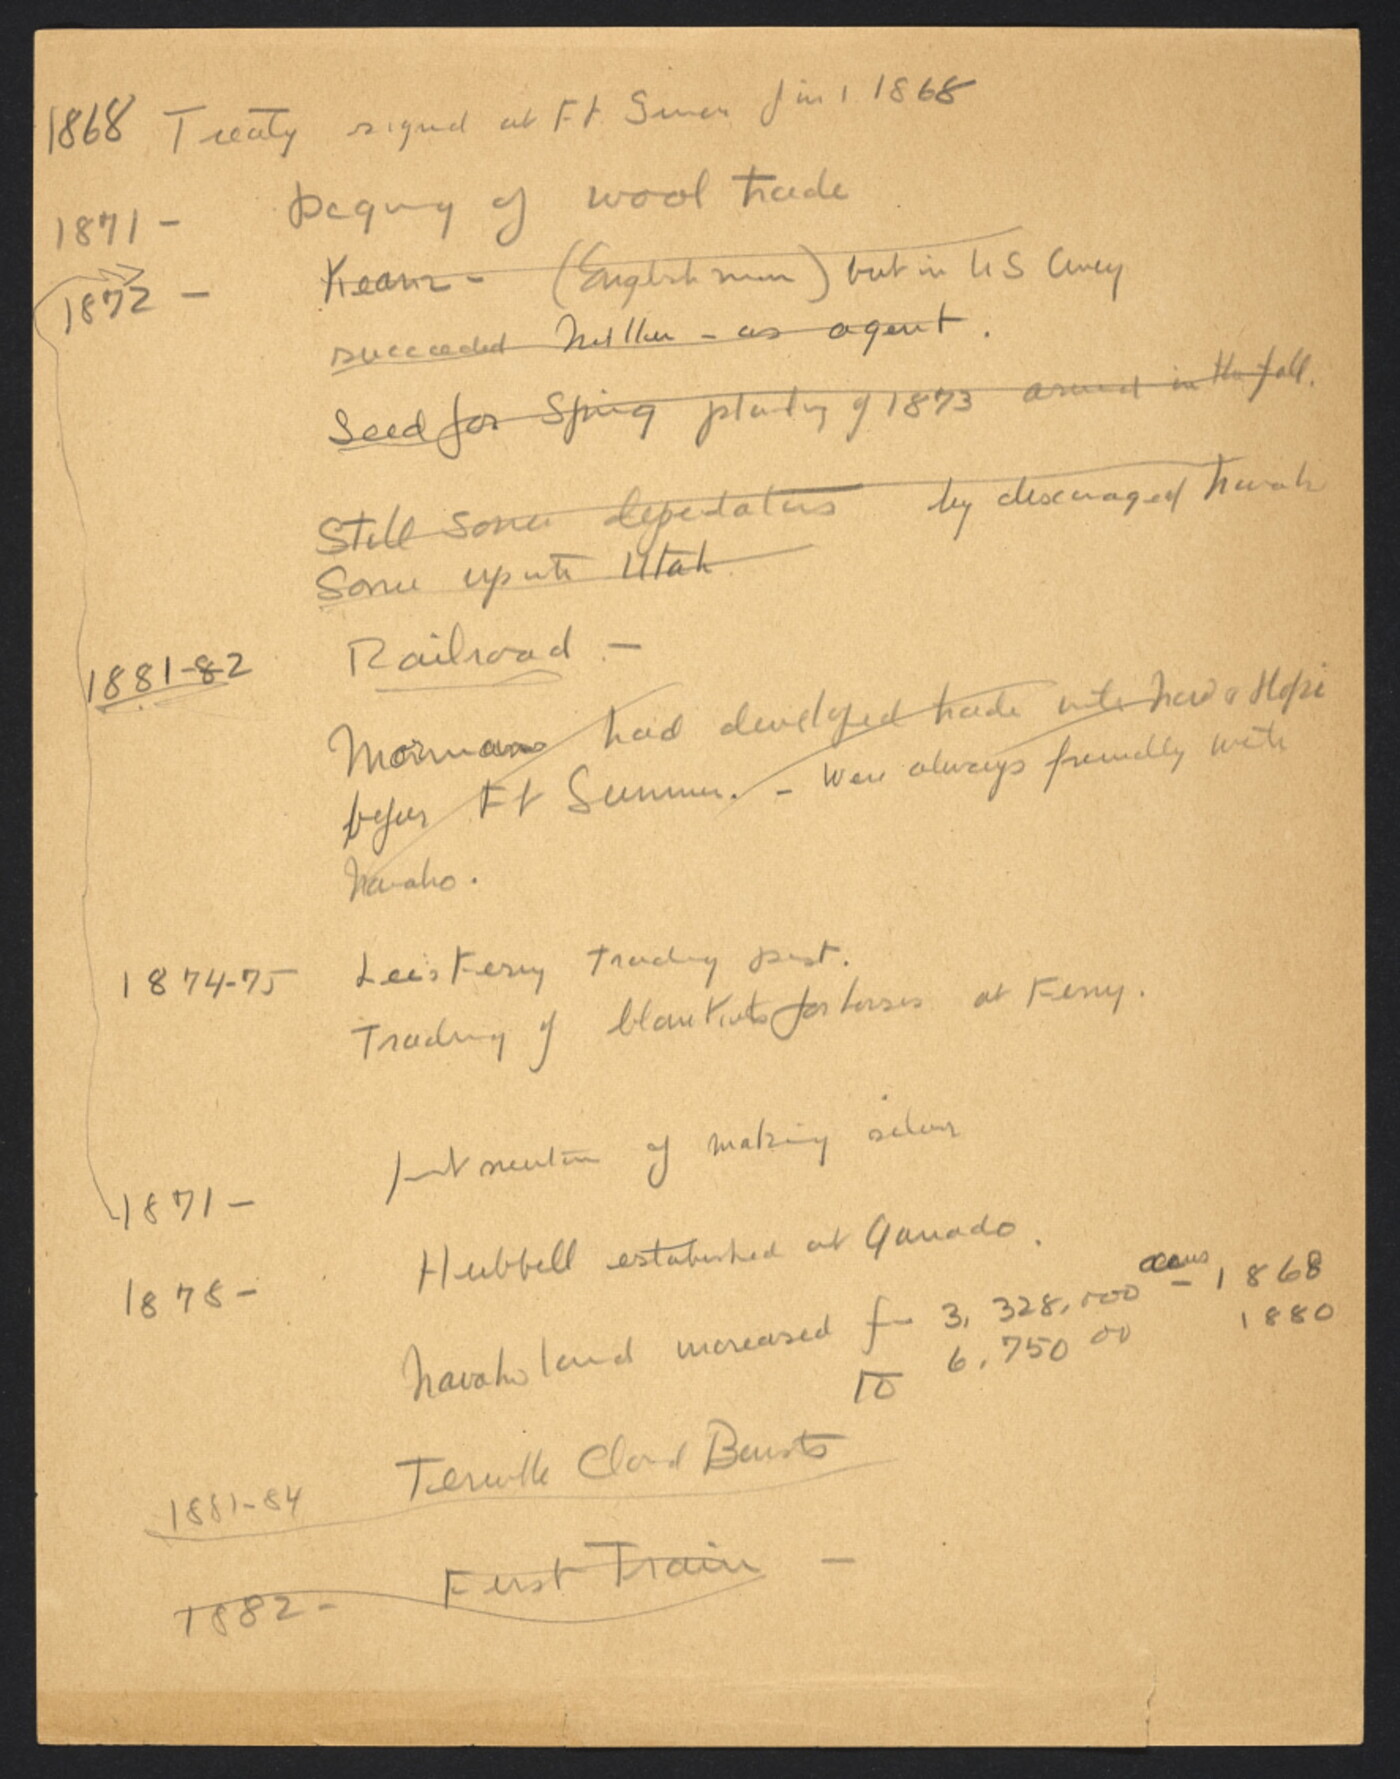 1868 Treaty signed at Ft Sumner Jun 1 1868
1871 - of wool trade
1872 - Keam - (English man) but in US Army
succeeded Miller - as agent.
Seed for Spring planting of 1873 arrived in the fall.
Still some depredations by discouraged Navaho
Some up into Utah
1881-82 Railroad -
Mormans had developed trade with Nav & Hopi
before Ft Sumner. - Were always friendly with
Navaho.
1874-75 Lee's Ferry Trading post.
Trading of blankets for horses at Ferry.
1871 - of making silver
1878 - Hubbell established at Ganado.
Navaho land increased fm 3,328,000 acres - 1868
to 6.750 00 1880
1881-84 Terrible Cloud Bursts
1882 - First Train -